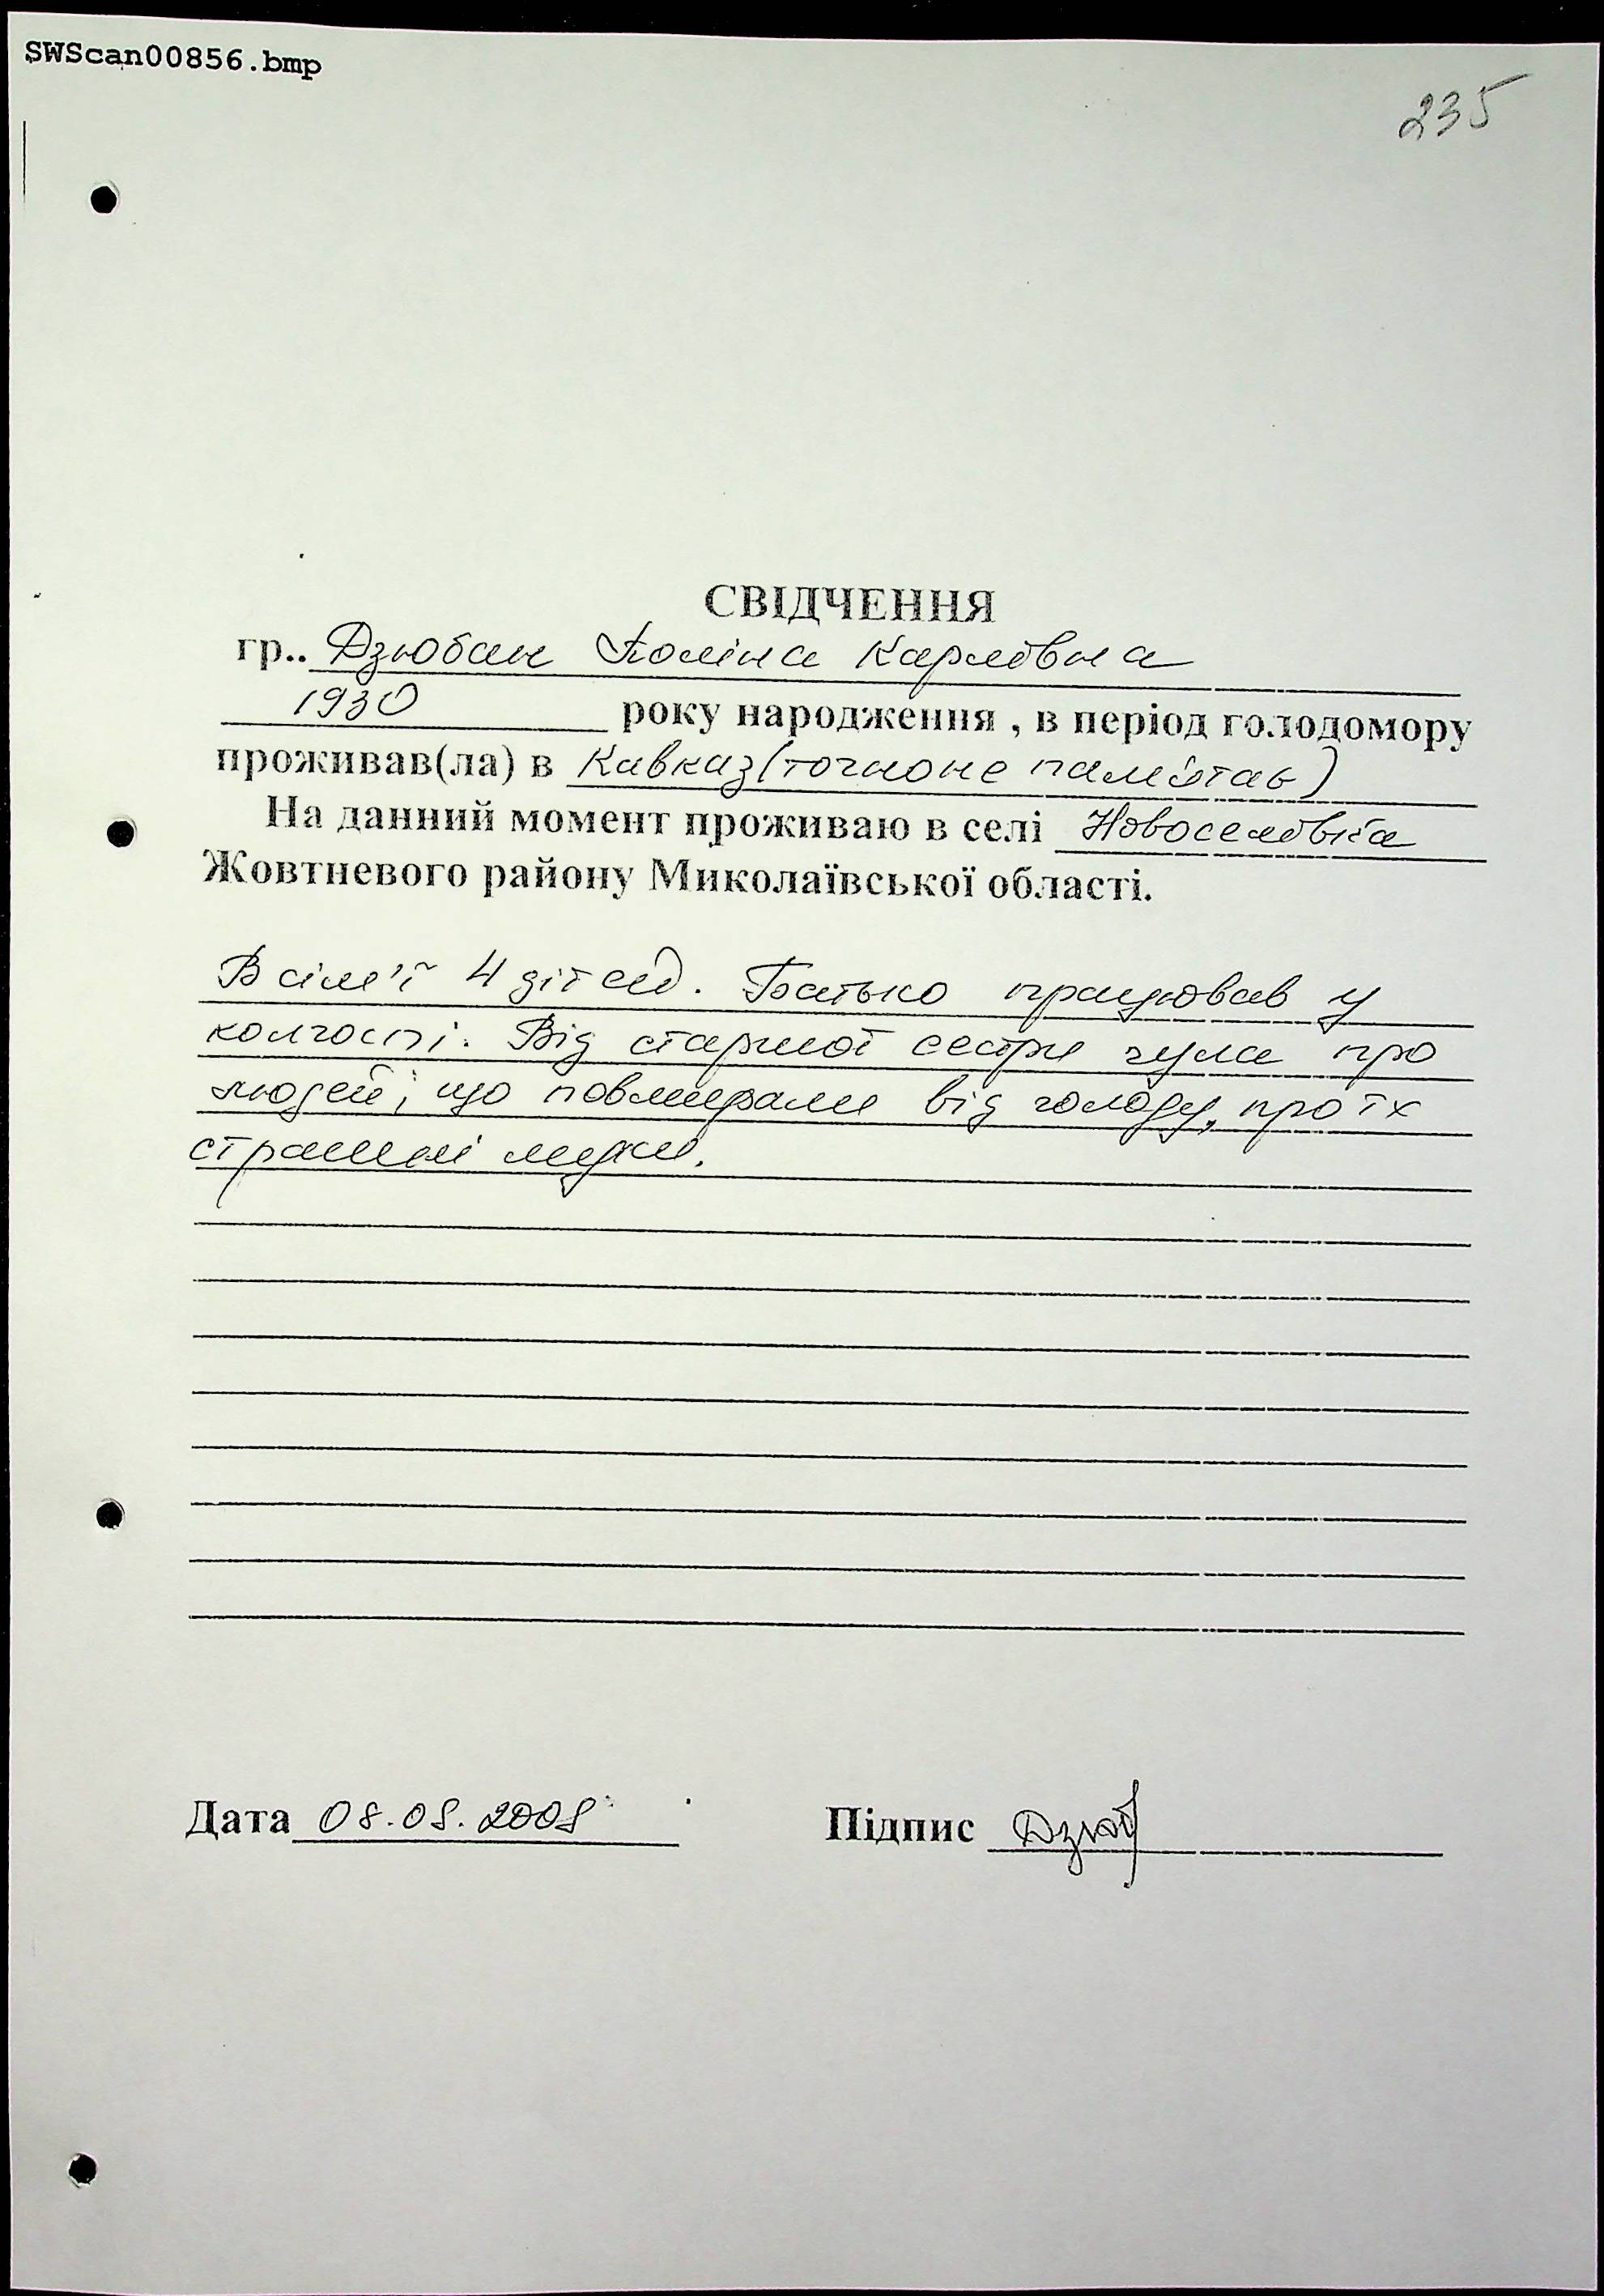 SWScan00856.bmp
235
СВІДЧЕННЯ
гр.. Дзюбан Поліна Карлівна
1930 року народження , в період голодомору
проживав(ла) в Кавказ (точно не пам'ятає)
На данний момент проживаю в селі Новоселівка
Жовтневого району Миколаївської області.
В сім'ї 4 дітей. Батько працював у
колгоспі. Від старшої сестри чула про
людей, що повмирали від голоду, про їх
страшні муки.
Дата 08.08.2008 Підпис Дзюб